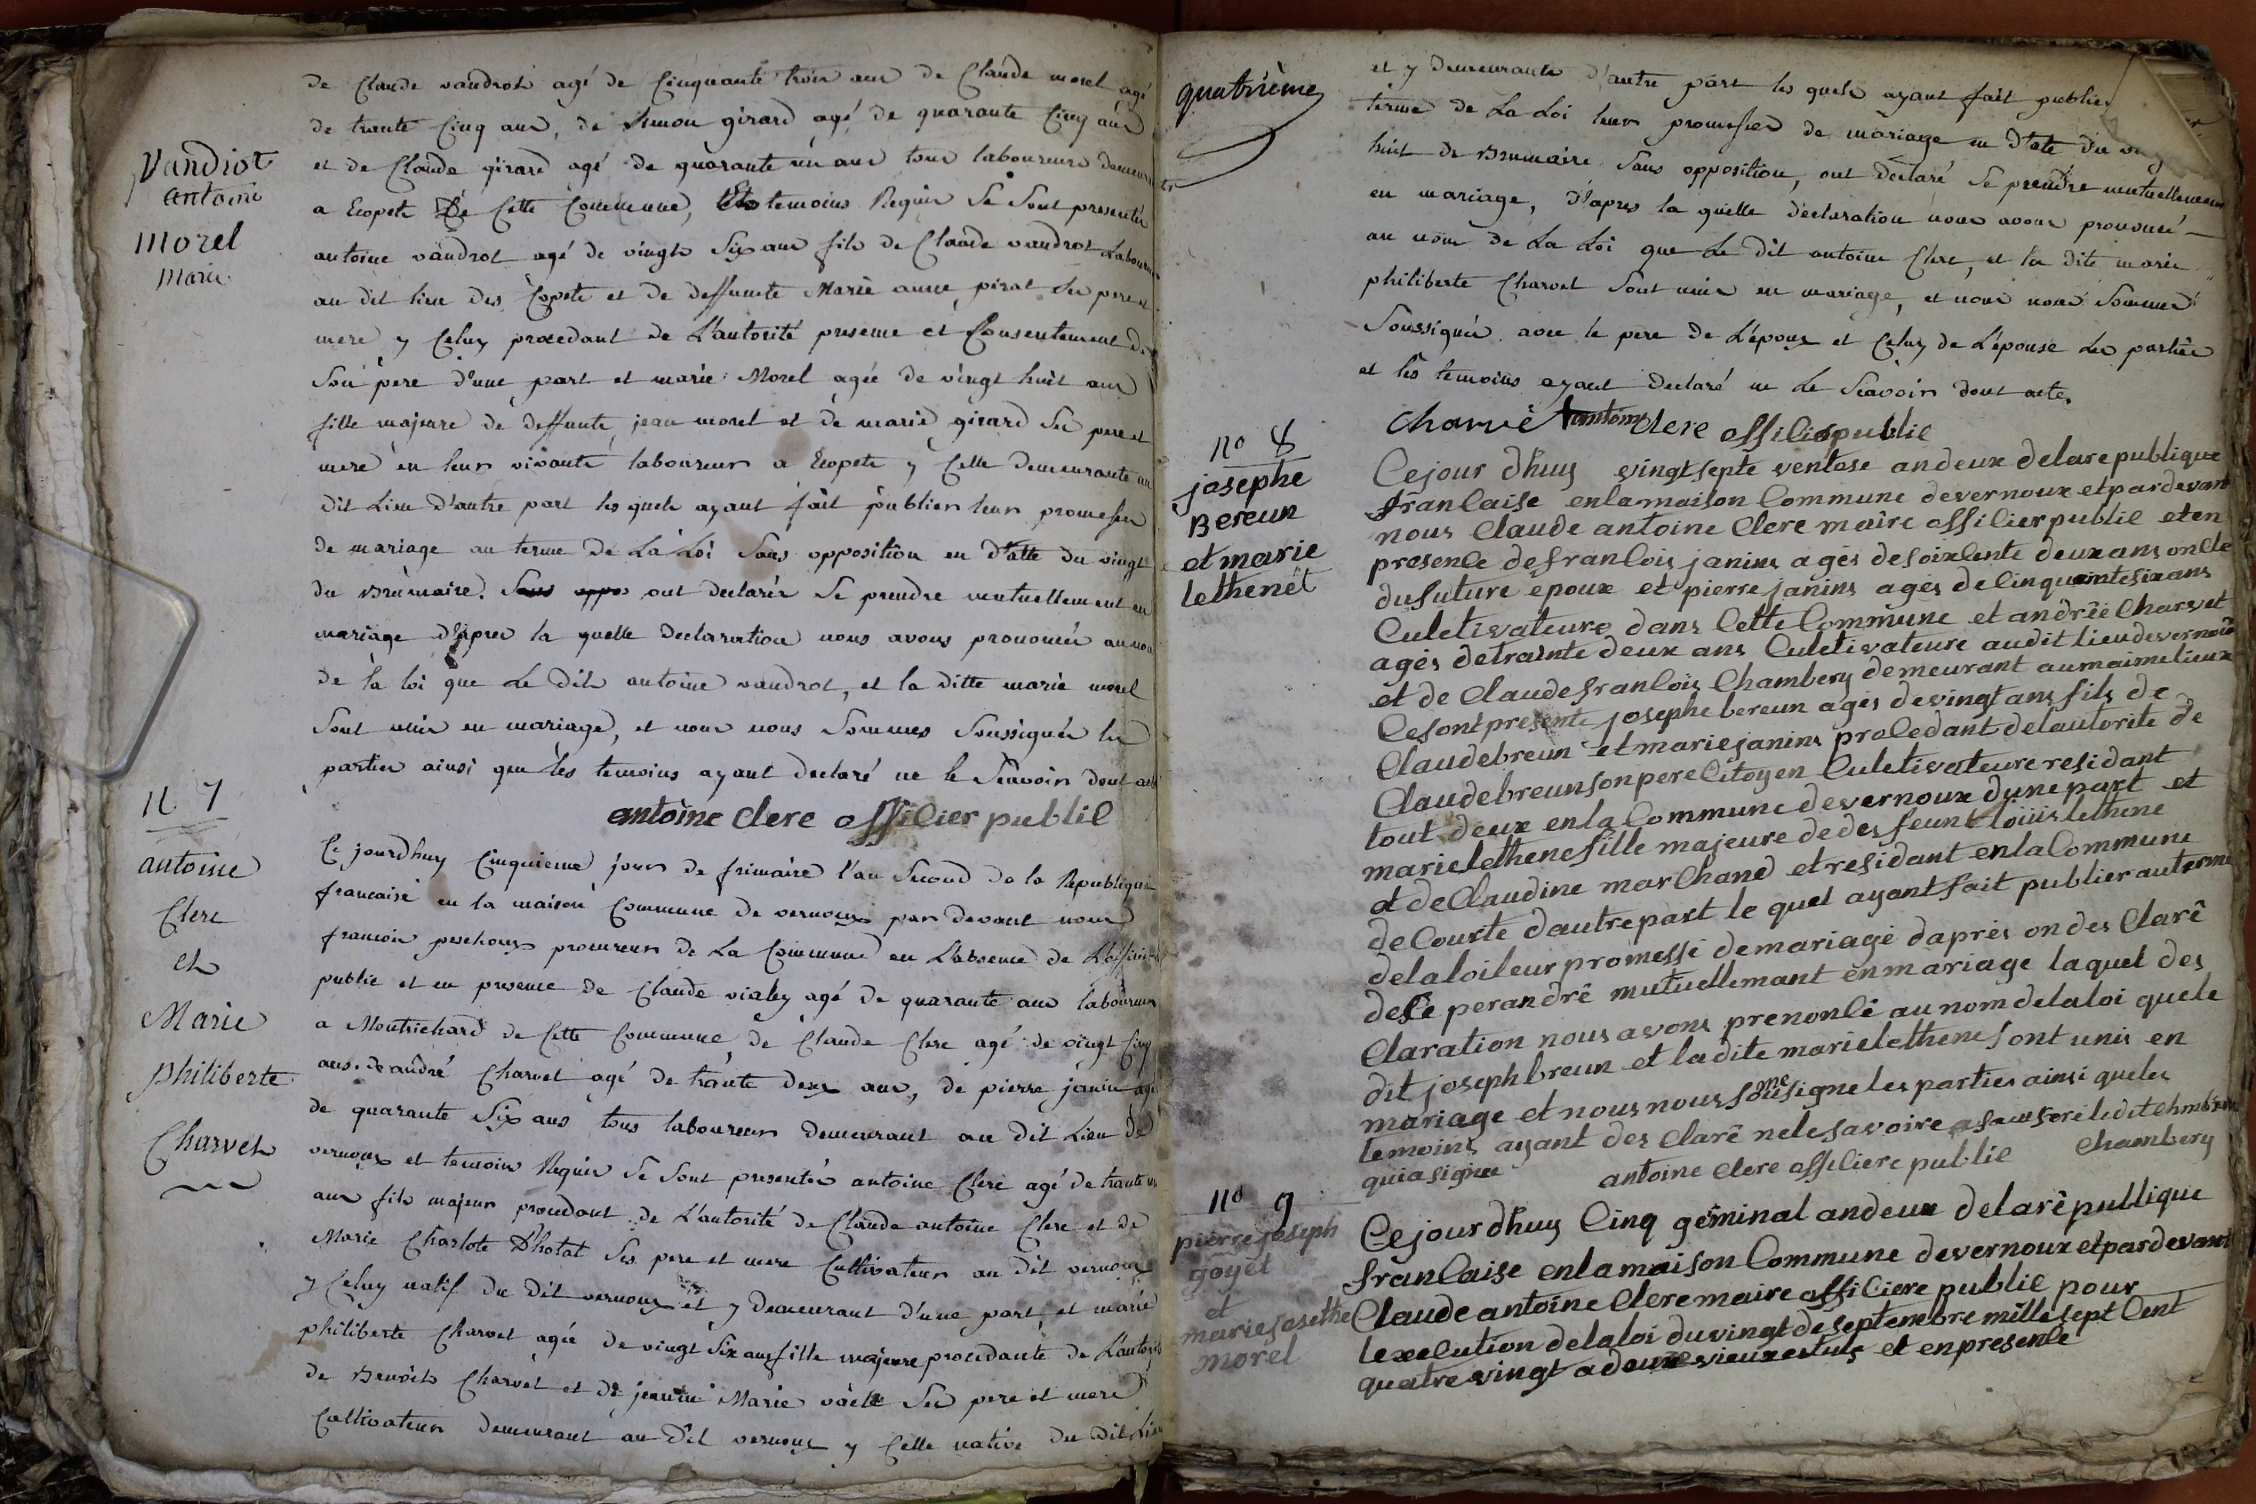 de Claude vandrot agé de Cinquante trois ans de Claude morel agé
de trante Cinq ans, de Simon girard agé de quarante Cinq ans
et de Claude girard agé de quarante un ans tous laboureurs
Vandrot
antoine
morel
marie
a Ecopets de Cette Commune, temoins Requis Se Sont presentés
antoine vandrot agé de vingts Six ans fils de Claude vandrot
au dit lieu des Ecopets et de deffuncte Marie anne pirat Ses pere et
mere y Celuy procedant de L'autorité presence et Consentement de
Son pere d'une part et marie Morel agée de vingt huit ans
fille majeure de deffunte jean morel et de marie girard Ses pere et
mere en leur vivante laboureurs a Ecopets y Cette demeurante au
dit Lieu d'autre part les quels ayant fait publier leur promesses
de mariage au terme de La Loi Sans opposition en d'atte du vingt
du Brumaire. ont declarés Se prendre mutuellement en
mariage d'apres la quelle declaration nous avons prononcés au nom
de la loi que Le dit antoine vandrot, et la ditte marie morel
Sont unis en mariage, et nous nous Sommes Soussignés les
parties ainsi que les temoins ayant declaré ne le Scavoir dont
antoine Clere offilier publil
N 7
antoine
Clerc
et
Marie
philiberte
Charvet
Ce jourdhuy Cinquieme jour de frimaire l'an Second de la Republique
francaise en la maison Commune de vernoux par devant nous
francois procureur de La Commune en L'absence de
public et en presence de Claude vialey agé de quarante ans laboureur
a Montrichard de Cette Commune, de Claude Clerc agé de vingt Cinq
ans. de andré Charvet agé de trante deux ans, de pierre janin agé
de quarante Six ans tous laboureurs demeurant au dit Lieu de
vernoux et temoins Requis Se Sont presentés antoine Clerc agé de trante
ans fils majeur procedant de L'autorité de Claude antoine Clerc et de
Marie Charlote Ses pere et mere Cultivateur au dit vernoux
y Celuy natif du dit vernoux et y demeurant d'une part, et marie
philiberte Charvet agée de vingt Six ans fille majeure procedante de L'autorité
de Benoits Charvet et de jeanne Marie Ses pere et mere
Cultivateurs demeurant au dit vernoux y Cette native du dit Lieu
quatrième
et y demeurante d'autre part les quels ayant fait publier
terme de La Loi leurs promesses de mariage en d'ate du
huit de Brumaire Sans opposition, ont declaré Se prendre mutuellement
en mariage, D'apres la quelle declaration nous avons prononcé
au nom de La Loi que Le dit antoine Clerc, et la dite marie
philiberte Charvet Sont unis en mariage, et nous nous Sommes
Soussignés avec le pere de L'époux et Celuy de L'épouse Les parties
et les temoins ayant declaré ne Le Scavoir dont acte.
Charvet antoine Clere offilier publil
no 8
josephe
Bereun
et marie
lethenét
Cejour dhuy vingt septe ventose an deux delare publique
franlaise enlamaison Commune devernoux et pardevant
nous Claude antoine Clere maire offilier publil et en
presenle defranlois janins agés desoixlente deux ans onlle
dufuture epoux et pierre janins agés de linquentesixans
Culetivateure dans Cette Commune et andrée Charvet
agés detrainte deux ans Culetivateure audit lieu devernoux
et de Claudefranlois Chambery demeurant aumaimelieux
Cesont presente josephe bereun agés devingt ans fils de
Claudebreun et mariejanins proledant delautorite de
Claudebreunsonpere Citoyen Culetivateure residant
tout deux enla Commune devernoux dune part et
marielethenefille majeure dedesfeunt louiis lethene
et deClaudine marChand et residant enlaCommune
deCourte dautrepart le quel ayantfait publier auterme
delaloileurpromessé demariage daprés on des Claré
desé perandré mutuellemant enmariage laquel des
Claration nous avons prenonlé au nomdelaloi quele
dit joseph breun et ladite marielethene sont unis en
mariage et nous nous sommesigneles parties ainsi queles
temoins ayant des Claré nelesavoire ledit
quiasignee antoine Clere offiliere publil Chambery
no 9
pierrejoseph
goyet
et
mariejosethe
morel
Cejour dhuy Cinq géminal andeux delarépublique
franlaise enlamaison Commune devernoux et pardevant
Claude antoine Cleremaire offiliere publil pour
lexelution delaloi duvingt deseptenebre mille sept Cent
quatre vingt adouze vieuxestuls et enpresenle